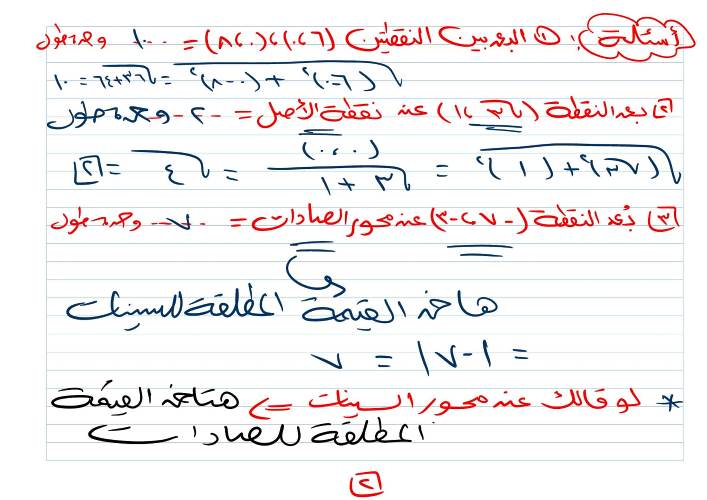 أسئلة : ① البعد بين النقطتين (٠،٦)،(٨،٠) = ١٠ وحدة طول
√(٦-٠)² + (٠-٨)² = √٣٦+٦٤ = ١٠
② بعد النقطة (√٣، ١) عن نقطة الأصل = ٢ وحدة طول
(٠،٠)
√(√٣)²+(١)² = √٣+١ = √٤ = ٢
③ بُعد النقطة (-٧،-٣) عن محور الصادات = ٧ وحدة طول
هاخد القيمة المطلقة للسينات
= |-٧| = ٧
* لو قالك عن محور السينات => هتاخد القيمة
المطلقة للصادات
٢